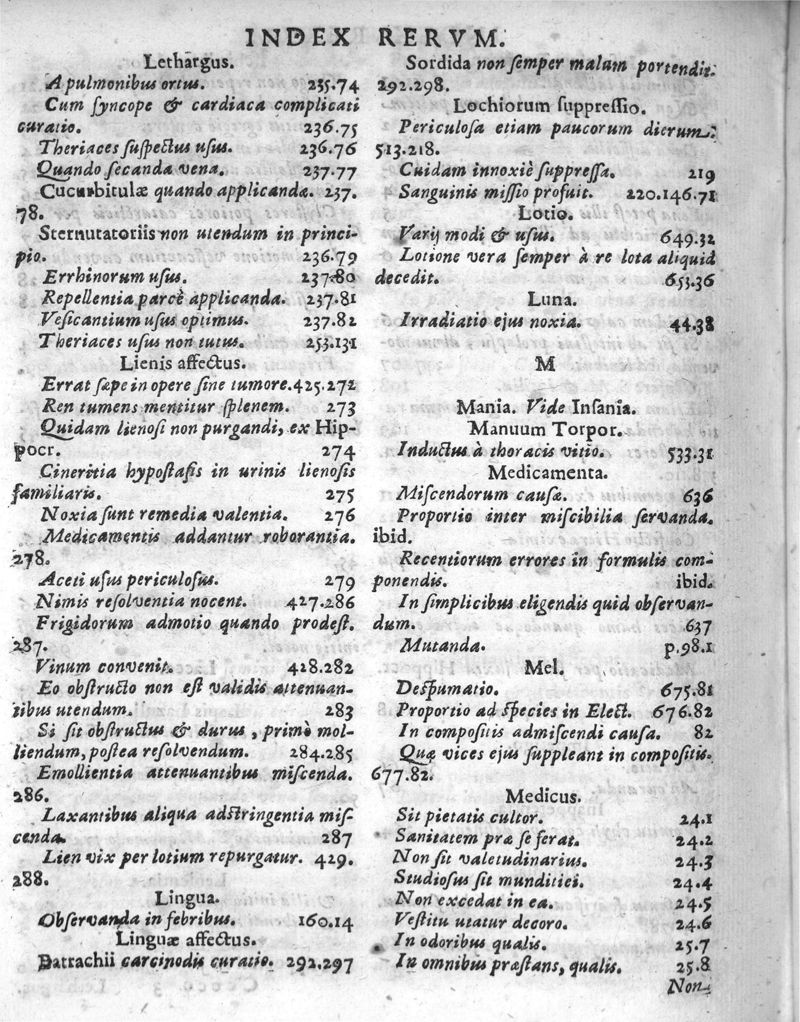 INDEX RERVM.
Lethargus.
A pulmonibus ortus. 235.74
Cum ſyncope & cardiaca complicati
curatio. 236.75
Theriaces ſuſpectus uſus. 236.76
Quando ſecanda vena. 237.77
Cucurbitulæ quando applicandæ. 237.
78.
Sternutatoriis non utendum in princi-
pio. 236.79
Errhinorum uſus. 237.80
Repellentia parcè applicanda. 237.81
Veſicantium uſus optimus. 237.82
Theriaces uſus non tutus. 253.131
Lienis affectus.
Errat ſæpe in opere ſine tumore. 425.272
Ren tumens mentitur ſplenem. 273
Quidam lienoſi non purgandi, ex Hip-
pocr. 274
Cineritia hypoſtaſis in urinis lienoſis
familiaris. 275
Noxia ſunt remedia valentia. 276
Medicamentis addantur roborantia.
278.
Aceti uſus periculoſus. 279
Nimis reſolventia nocent. 427.286
Frigidorum admotio quando prodeſt.
287.
Vinum convenit. 428.282
Eo obſtructo non eſt validis attenuan-
tibus utendum. 283
Si ſit obſtructus & durus, primò mol-
liendum, poſtea reſolvendum. 284.285
Emollientia attenuantibus miſcenda.
286.
Laxantibus aliqua adſtringentia miſ-
cenda. 287
Lien vix per lotium repurgatur. 429.
288.
Lingua.
Obſervanda in febribus. 160.14
Linguæ affectus.
Batrachii carcinodis curatio. 292.297
Sordida non ſemper malum portendit.
292.298.
Lochiorum ſuppreſſio.
Periculoſa etiam paucorum dierum.
513.218.
Cuidam innoxiè ſuppreſſa. 219
Sanguinis miſſio profuit. 220.146.71
Lotio.
Varij modi & uſus. 649.32
Lotione vera ſemper à re lota aliquid
decedit. 653.36
Luna.
Irradiatio ejus noxia. 44.38
M
Mania. Vide Inſania.
Manuum Torpor.
Inductus à thoracis vitio. 533.31
Medicamenta.
Miſcendorum cauſæ. 636
Proportio inter miſcibilia ſervanda.
ibid.
Recentiorum errores in formulis com-
ponendis. ibid.
In ſimplicibus eligendis quid obſervan-
dum. 637
Mutanda. p.98.1
Mel.
Deſpumatio. 675.81
Proportio ad ſpecies in Elect. 676.82
In compoſitis admiſcendi cauſa. 82
Quæ vices ejus ſuppleant in compoſitis.
677.82.
Medicus.
Sit pietatis cultor. 24.1
Sanitatem præ ſe ferat. 24.2
Non ſit valetudinarius. 24.3
Studioſus ſit munditiei. 24.4
Non excedat in ea. 24.5
Veſtitu utatur decoro. 24.6
In odoribus qualis. 25.7
In omnibus præſtans, qualis. 25.8
Non